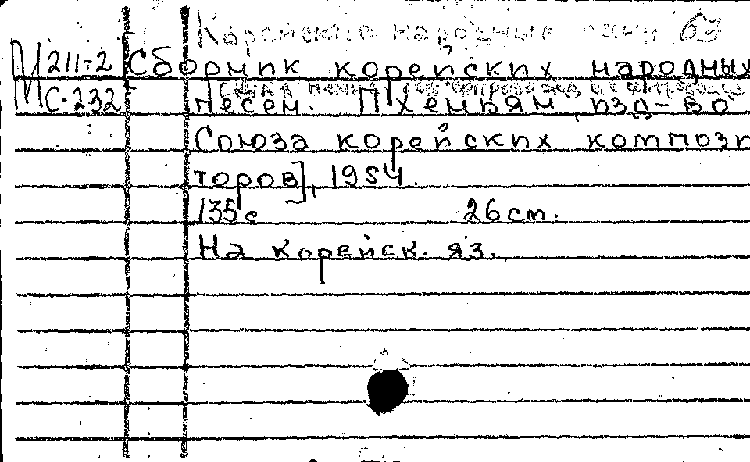 Корейские народные песни
М 211-2 Сборник корейских народных
С-232 песен. Пхеньян, изд-во
Союза корейских компози
торов], 1954.
135 с 26 cm.
На корейск. яз.